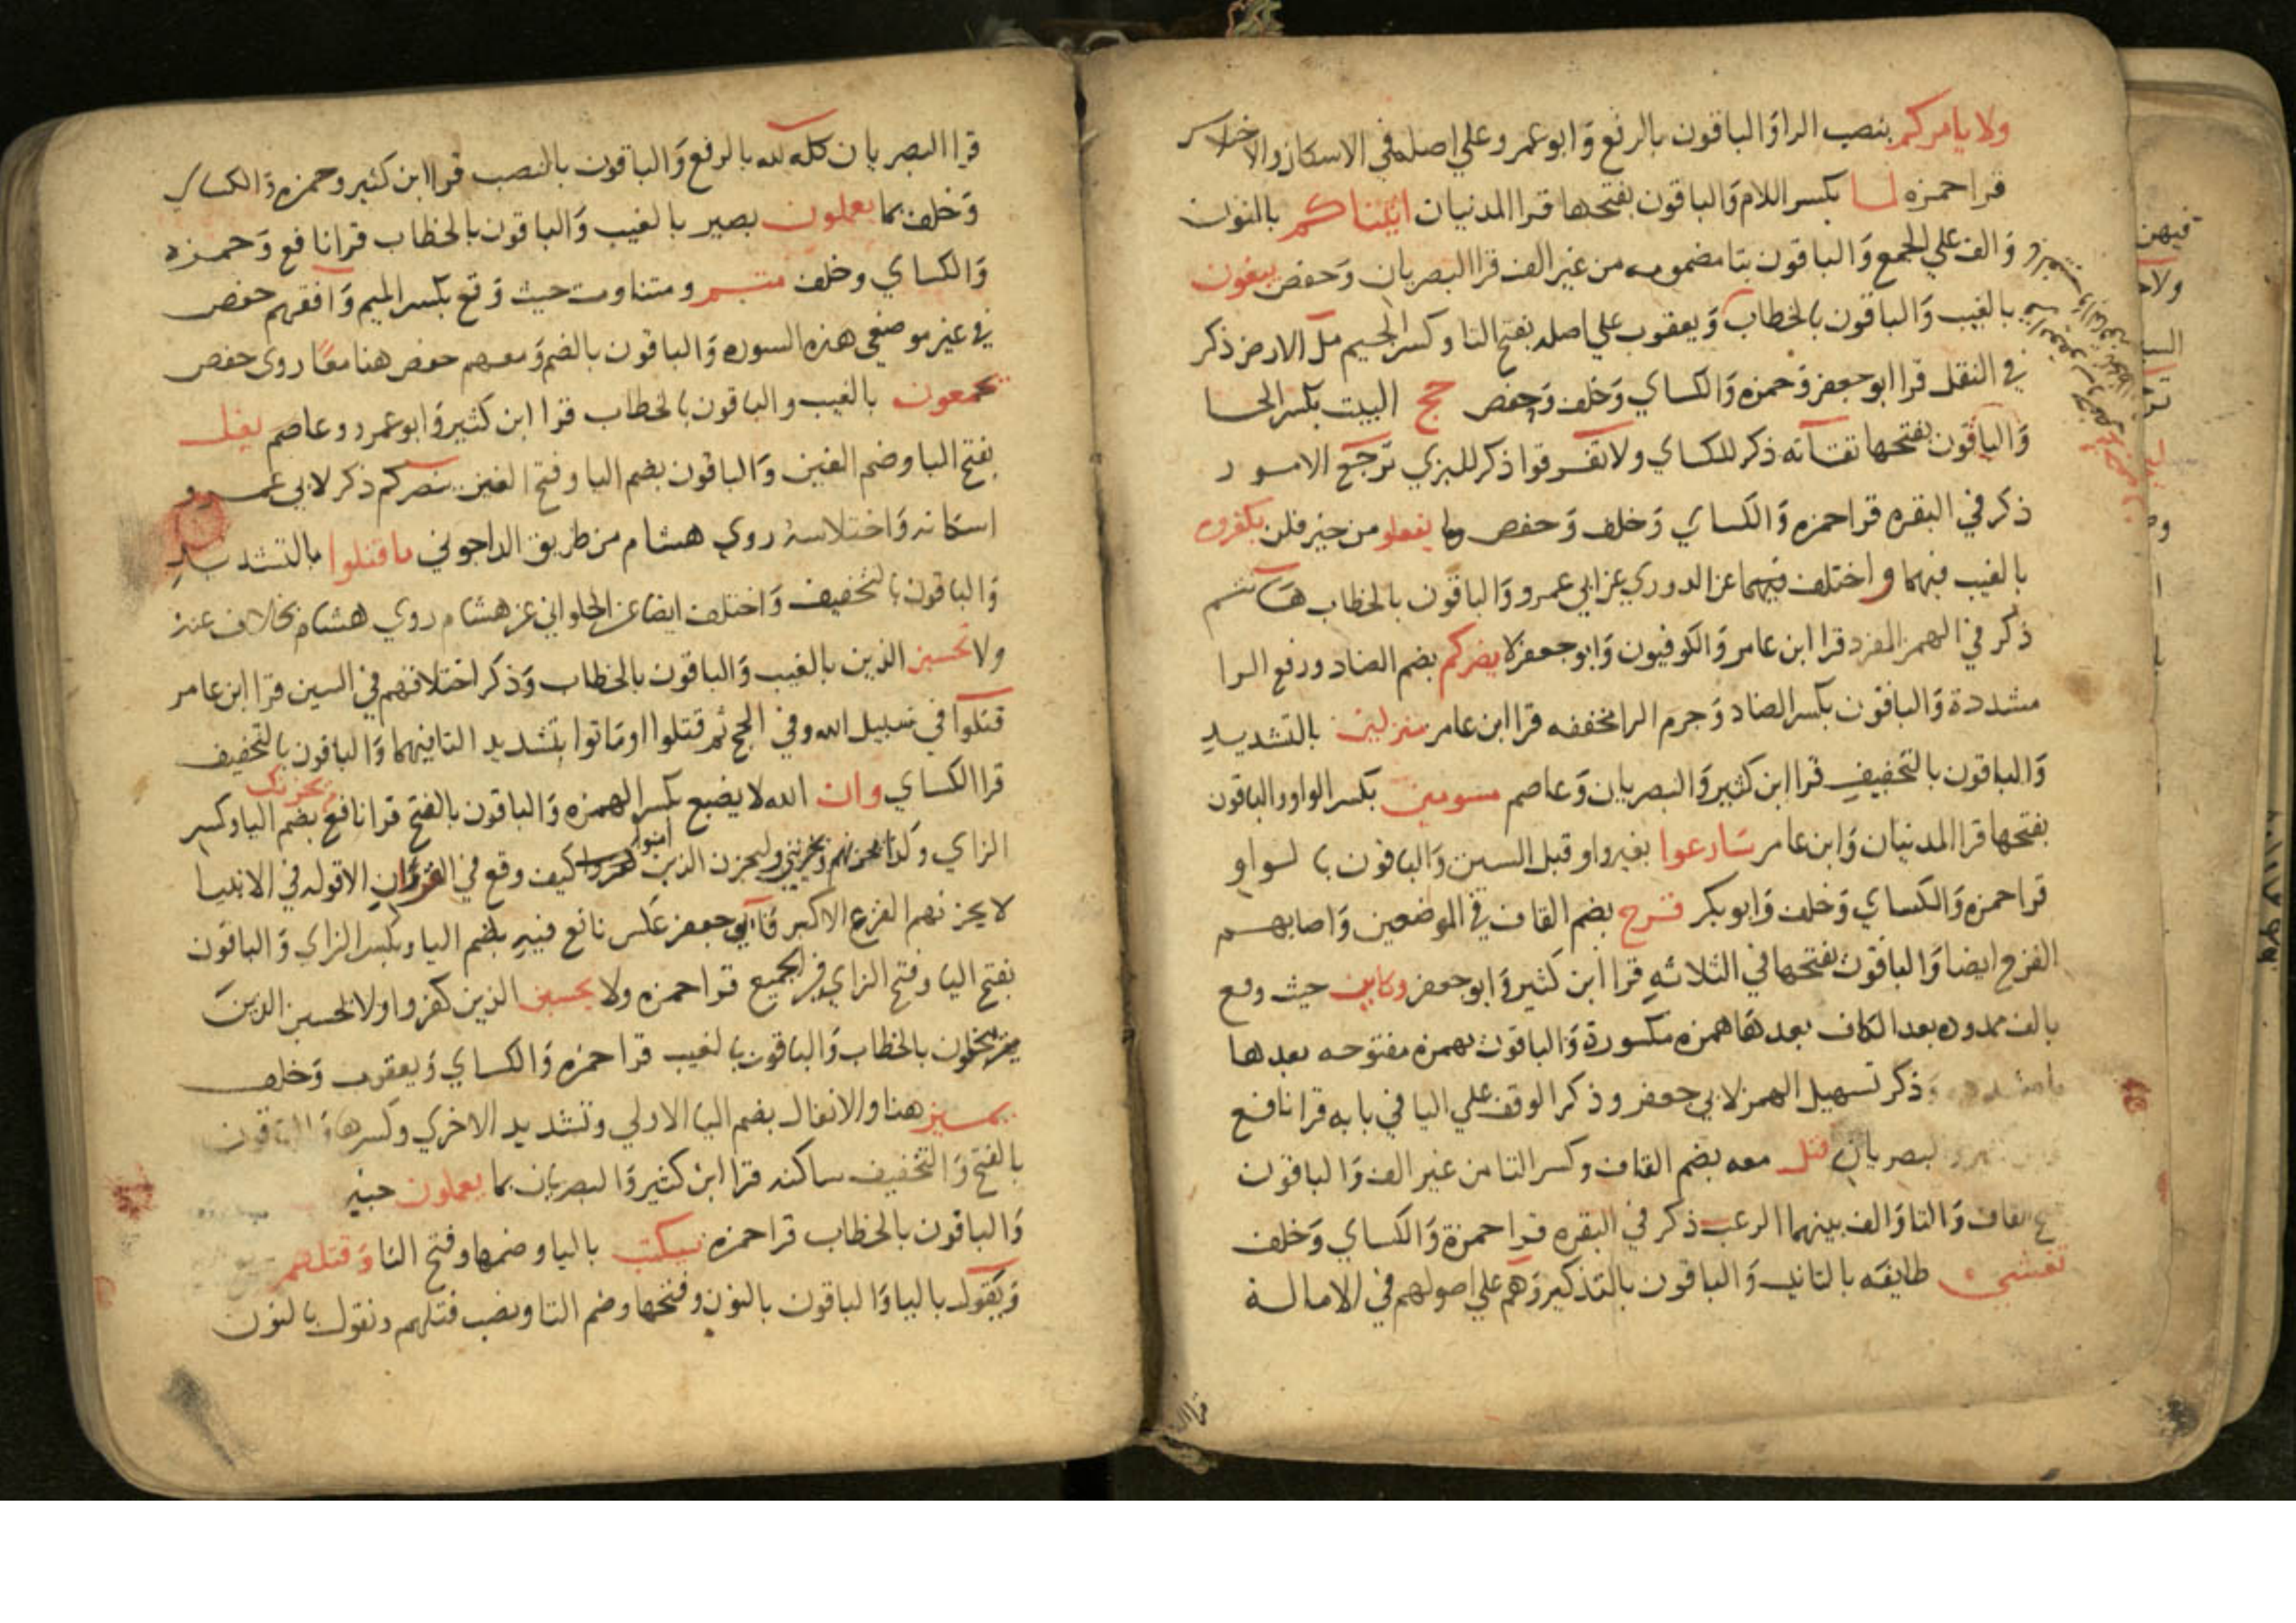 ولا يامركم بنصب الرا وَالباقون بالرفع وَابو عمرو علي اصله في الاسكان والاختلاس
قرا حمزه لما بكسر اللام وَالباقون بفتحها قرا المدنيان اتيناكم بالنون
وَالف علي الجمع وَالباقون بتا مضمومه من غير الف قرا البصريان وَحفص يبغون
بالغيب وَالباقون بالخطاب وَيعقوب علي اصله بفتح التا وكسر الجيم مل الارض ذكر
في النقل قرا ابو جعفر وَحمزه وَالكساي وَخلف وَحفص حج البيت بكسر الحا
وَالباقون بفتحها تقاته ذكر للكساي ولا تفرقوا ذكر للبزي ترجع الامور
ذكر في البقره قرا حمزه وَالكساي وَخلف وَحفص وما يفعلو من خير فلن يكفروه
بالغيب فيهما واختلف فيهما عن الدوري عن ابي عمرو وَالباقون بالخطاب هانتم
ذكر في الهمز المفرد قرا ابن عامر وَالكوفيون وَابو جعفر لا يضركم بضم الضاد ورفع الرا
مشددة وَالباقون بكسر الضاد وَجزم الرا مخففه قرا ابن عامر منزلين بالتشديد
وَالباقون بالتخفيف قرا ابن كثير وَالبصريان وَعاصم مسومين بكسر الواو والباقون
بفتحها قرا المدنيان وَابن عامر سَارعوا بغير واو قبل السين وَالباقون بالواو
قرا حمزه وَالكساي وَخلف وَابو بكر قرح بضم القاف في الموضعين وَاصابهم
القرح ايضا وَالباقون بفتحها في الثلاثه قرا ابن كثير وَابو جعفر وكاين حيث وقع
بالف ممدوده بعد الكاف بعدها همزه مكسورة وَالباقون بهمزه مفتوحه بعدها
يا مشدده وَذكر تسهيل الهمز لابي جعفر وذكر الوقف علي اليا في بابه قرا نافع
وابن كثير والبصريان قتل معه بضم القاف وكسر التا من غير الف وَالباقون
بفتح القاف وَالتا وَالف بينهما الرعب ذكر في البقره قرا حمزة وَالكساي وَخلف
تغشي طايفه بالتانيث وَالباقون بالتذكير وَهم علي اصولهم في الامالة
قرا البصريان كله لله بالرفع وَالباقون بالنصب قرا ابن كثير وحمزه وَالكساي
وَخلف بما يعملون بصير بالغيب وَالباقون بالخطاب قرا نافع وَحمزه
وَالكساي وخلف متم ومتنا ومت حيث وَقع بكسر الميم وَافقهم حفص
في غير موضعي هذه السوره وَالباقون بالضم وَمعهم حفص هنا معًا روي حفص
يجمعون بالغيب والباقون بالخطاب قرا ابن كثير وَابو عمرو وعاصم يغل
بفتح اليا وضم الغين وَالباقون بضم اليا وفتح الغين ينصركم ذكر لابي عمرو
اسكانه وَاختلاسه روي هشام من طريق الداجوني ما قتلوا بالتشديد
وَالباقون بالتخفيف وَاختلف ايضا عن الحلواني عن هشام روي هشام بخلاف عنه
ولا تحسبن الذين بالغيب وَالباقون بالخطاب وَذكر اختلافهم في السين قرا ابن عامر
قتلوا في سبيل الله وفي الحج ثم قتلوا او ماتوا بتشديد التا فيهما وَالباقون بالتخفيف
قرا الكساي وان الله لا يضيع بكسر الهمزه وَالباقون بالفتح قرا نافع يحزنك بضم اليا وكسر
الزاي وكذا يحزنهم ويحزنني وليحزن الذين امنوا كيف وقع في القران الا قوله في الانبيا
لا يحزنهم الفزع الاكبر وَابي جعفر عكس نافع فيه بضم اليا وبكسر الزاي وَالباقون
بفتح اليا وفتح الزاي في الجميع قرا حمزه ولا يحسبن الذين كفروا ولا تحسبن الذين
يبخلون بالخطاب وَالباقون بالغيب قرا حمزه وَالكساي وَيعقوب وَخلف
يميز هنا والانفال بضم اليا الاولي وتشديد الاخري وكسرها وَالباقون
بالفتح وَالتخفيف ساكنه قرا ابن كثير وَالبصريان بما يعملون خبير
وَالباقون بالخطاب قرا حمزه سيكتب باليا وضمها وفتح التا وَقتلهم
وَيقول باليا وَالباقون بالنون وفتحها وضم التا ونصب قتلهم ونقول بالنون